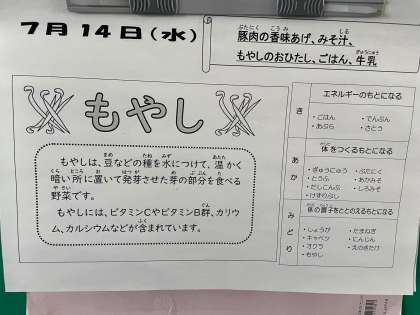 7月14日(水)
豚肉の香味あげ、みそ汁、
もやしのおひたし、ごはん、牛乳
もやし
もやしは、豆などの種を水につけて、温かく
暗い所に置いて発芽させた芽の部分を食べる
野菜です。
もやしには、ビタミンCやビタミンB群、カリウ
ム、カルシウムなどが含まれています。
き
エネルギーのもとになる
・ごはん ・でんぷん
・あぶら ・さとう
あか
体をつくるもとになる
・ぎゅうにゅう ・ぶたにく
・とうふ ・あかみそ
・だしこんぶ ・しろみそ
・けずりぶし
みどり
体の調子をととのえるもとになる
・しょうが ・たまねぎ
・キャベツ ・にんじん
・オクラ ・えのきたけ
・もやし